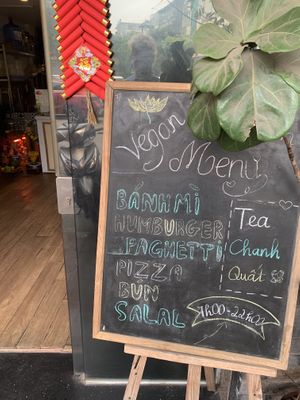 Vegan
Menu
BÁNH MÌ
HUMBURGER
SPAGHETTI
PIZZA
BUN
SALAL
Tea
Chanh
Quất
7h00 - 22h00